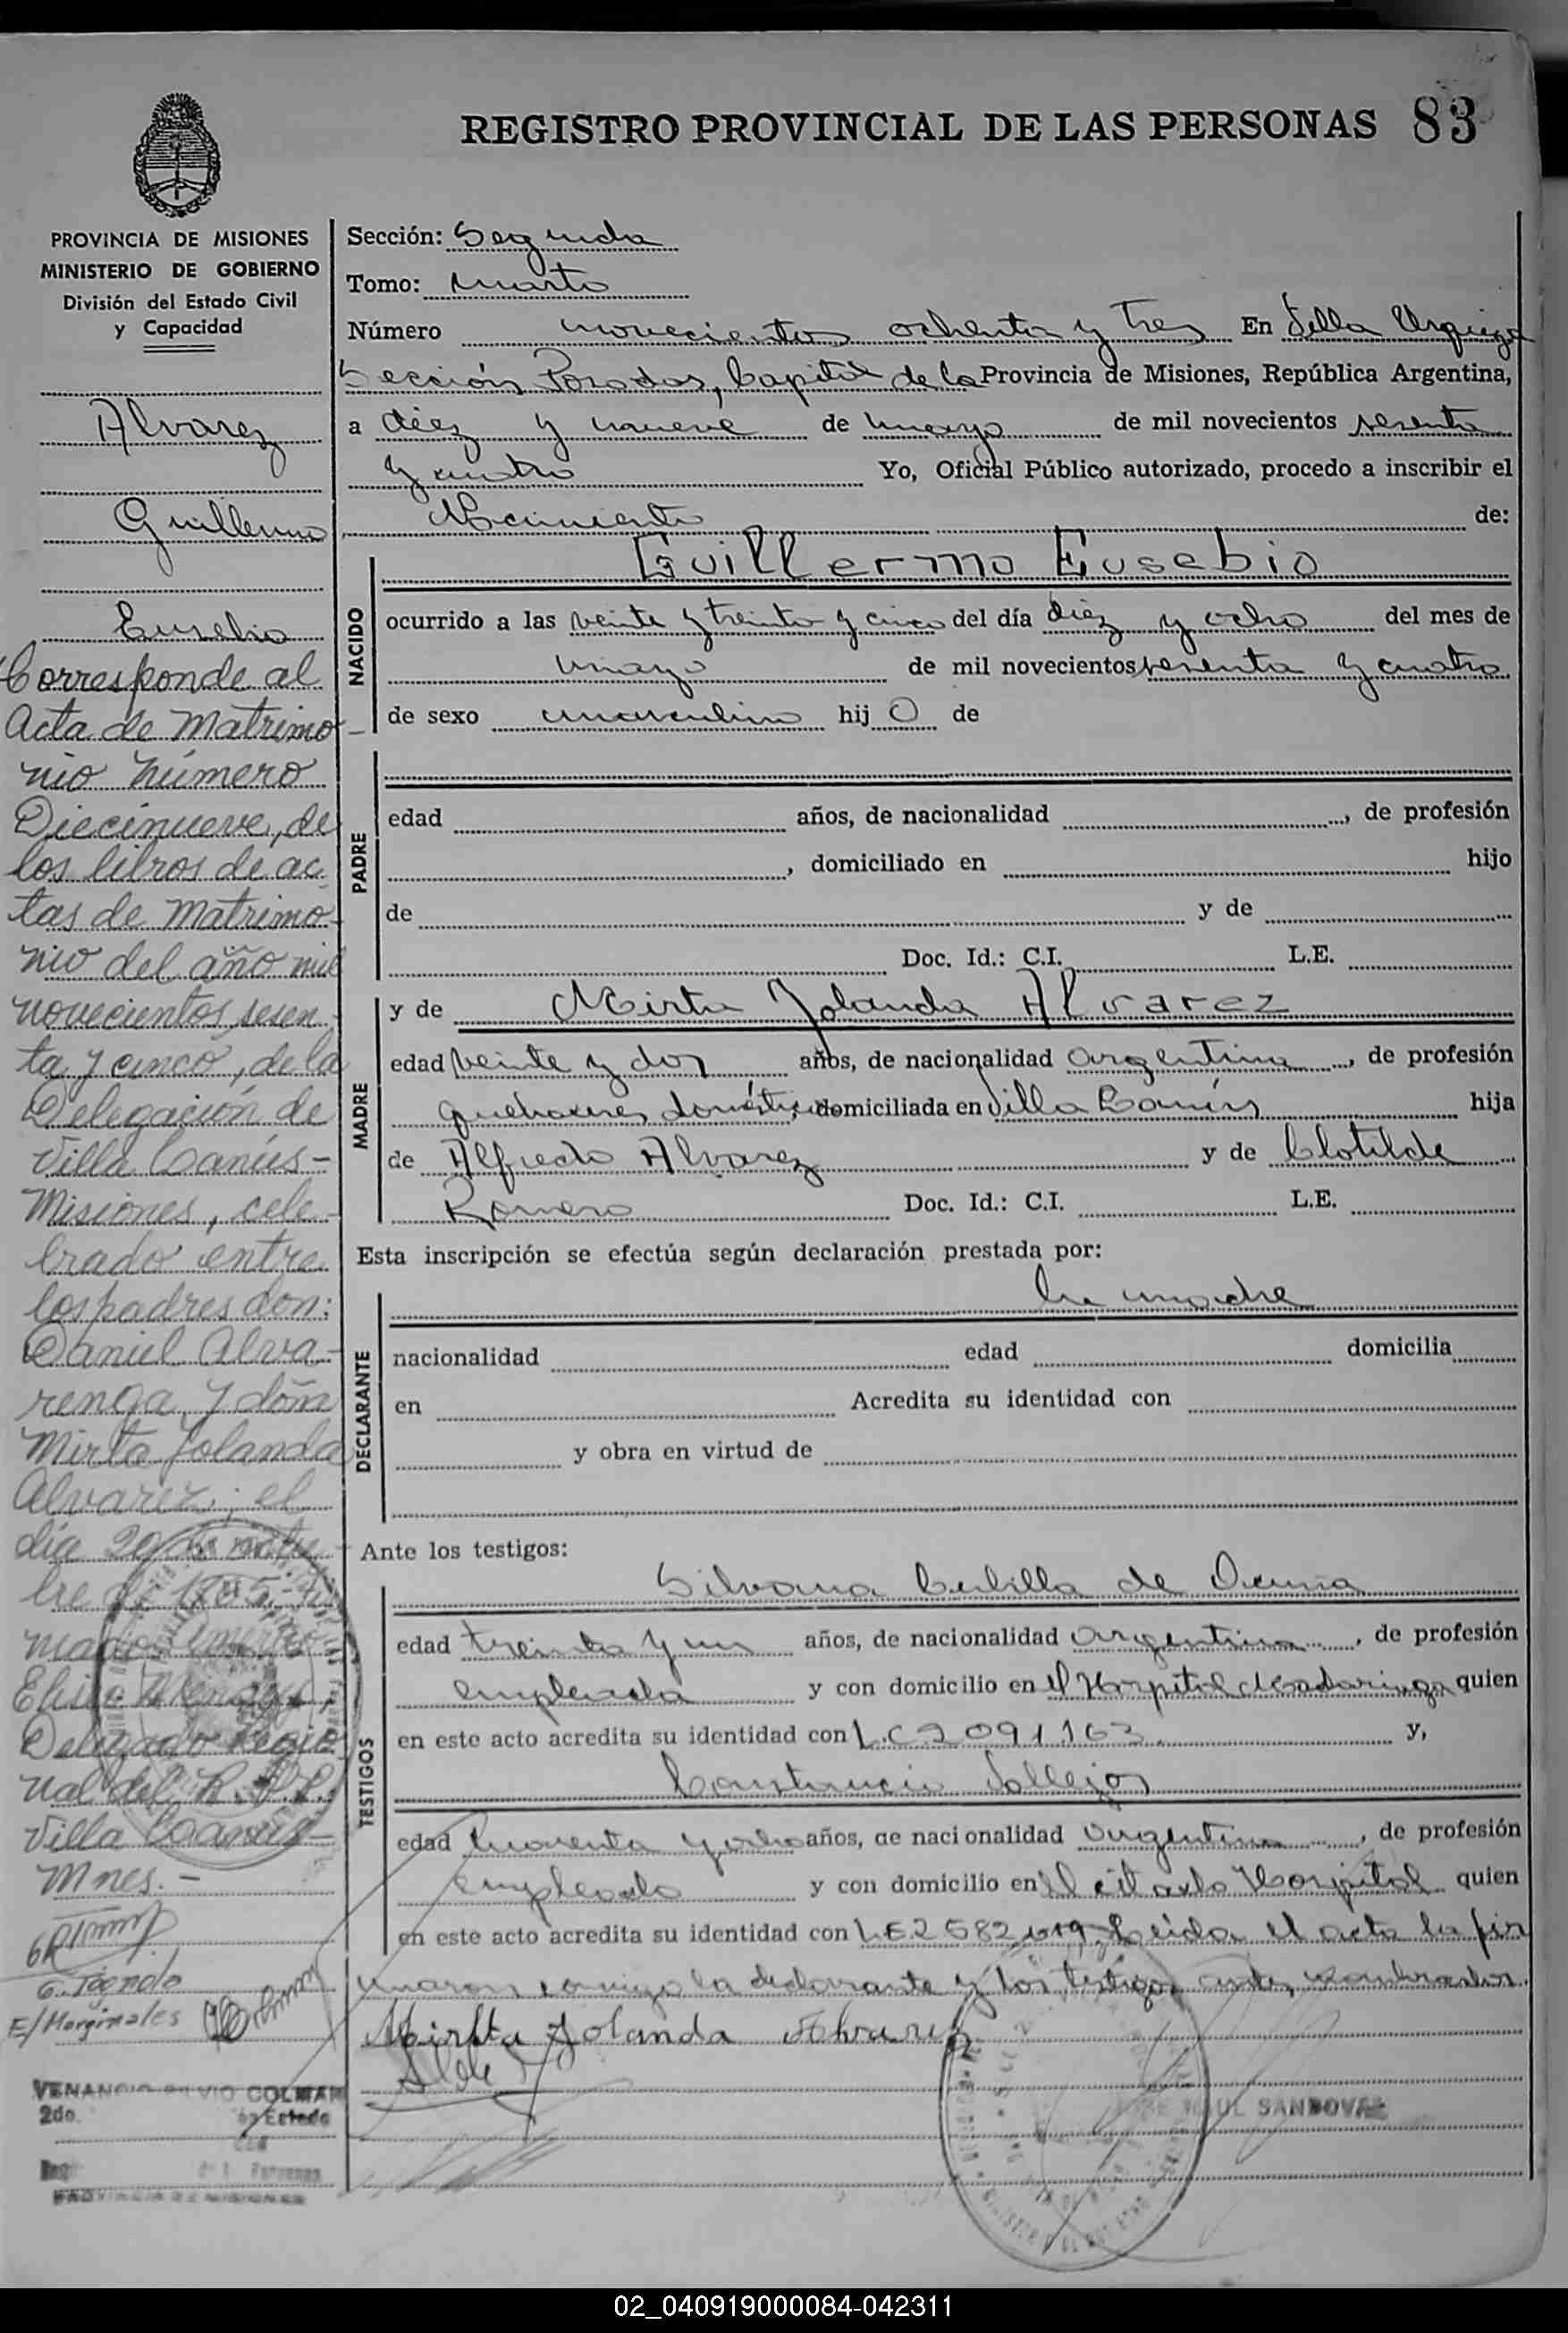 REGISTRO PROVINCIAL DE LAS PERSONAS 83
PROVINCIA DE MISIONES
MINISTERIO DE GOBIERNO
División del Estado Civil
y Capacidad
Alvarez
Guillermo
Eusebio
Corresponde al
Acta de Matrimo
nio número
Diecinueve, de
los libros de ac
tas de Matrimo-
nio del año mil
novecientos sesen
ta y cinco, de la
Delegación de
Villa Lanús-
Misiones, cele-
brado entre
los padres don:
Daniel Alva-
renga y doña
Mirta Jolanda
Alvarez; el
día
Delegado Regio
nal del R.P.P.
Villa Lanús-
Mnes.-
E/Marginales
VENANCIO SILVIO COLMAN
2do.
PROVINCIA DE MISIONES
Sección: Segunda
Tomo: Cuarto
Número novecientos ochenta y tres En Villa Urquiza
Sección Posadas, Capital de la Provincia de Misiones, República Argentina,
a diez y nueve de mayo de mil novecientos sesenta
y cuatro Yo, Oficial Público autorizado, procedo a inscribir el
Nacimiento de:
NACIDO
Guillermo Eusebio
ocurrido a las veinte y treinta y cinco del día diez y ocho del mes de
mayo de mil novecientos sesenta y cuatro
de sexo masculino hij o de
PADRE
edad años, de nacionalidad , de profesión
, domiciliado en hijo
de y de
Doc. Id.: C.I. L.E.
MADRE
y de Mirta Jolanda Alvarez
edad veinte y dos años, de nacionalidad argentina , de profesión
quehaceres domésticos domiciliada en Villa Lanús hija
de Alfredo Alvarez y de Clotilde
Romero Doc. Id.: C.I. L.E.
Esta inscripción se efectúa según declaración prestada por:
la madre
DECLARANTE
nacionalidad edad domicilia
en Acredita su identidad con
y obra en virtud de
Ante los testigos:
TESTIGOS
Silvana Cubilla de Acuña
edad treinta y un años, de nacionalidad argentina , de profesión
empleada y con domicilio en el Hospital Madariaga quien
en este acto acredita su identidad con L.C 2091.163 y,
Constancio Vallejos
edad cuarenta y ocho años, de nacionalidad argentina , de profesión
empleado y con domicilio en el citado Hospital quien
en este acto acredita su identidad con L.E 2582.019. Leída el acta la fir
maron conmigo la declarante y los testigos antes nombrados.
Mirta Jolanda Alvarez
RAUL SANDOVAL
02_040919000084-042311